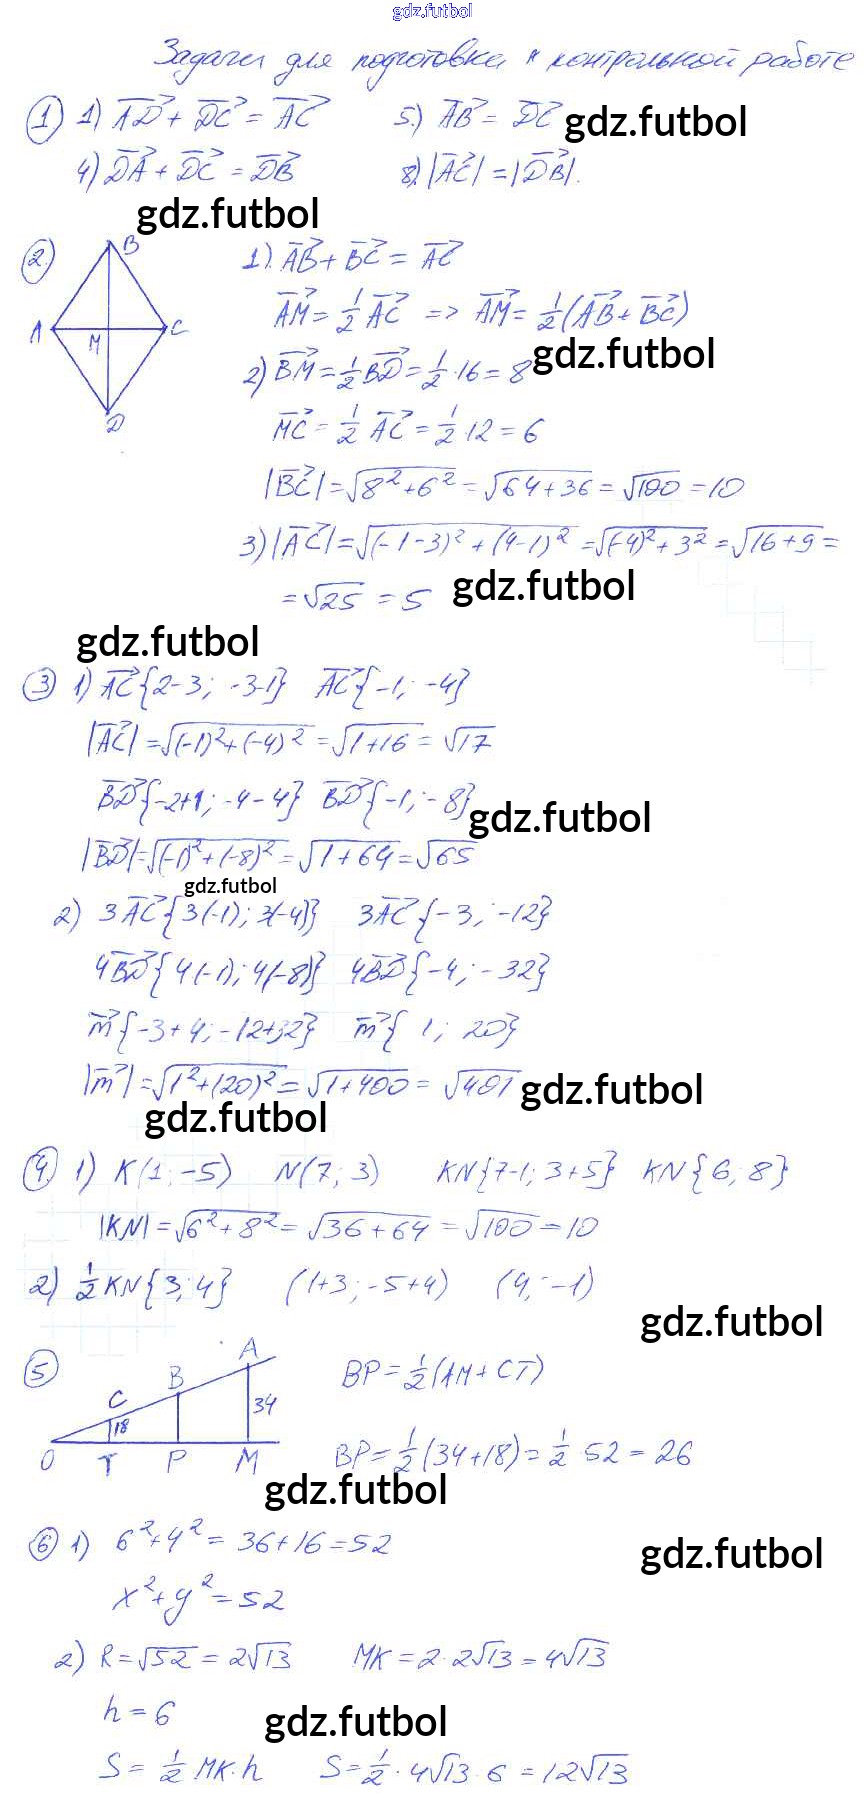 gdz.futbol
Задачи для подготовки к контрольной работе
1) 1) AD + DC = AC 5) AB = DC gdz.futbol
4) DA + DC = DB 8) |AC| = |DB|.
gdz.futbol
2) 1). AB + BC = AC
AM = 1/2 AC => AM = 1/2 (AB + BC)
gdz.futbol
2) BM = 1/2 BD = 1/2 · 16 = 8
MC = 1/2 AC = 1/2 · 12 = 6
|BC| = √8²+6² = √64+36 = √100 = 10
3) |AC| = √(-1-3)² + (4-1)² = √(-4)² + 3² = √16+9 =
= √25 = 5 gdz.futbol
A B C M D
gdz.futbol
3) 1) AC{2-3; -3-1} AC{-1; -4}
|AC| = √(-1)²+(-4)² = √1+16 = √17
BD{-2+1; -4-4} BD{-1; -8} gdz.futbol
|BD| = √(-1)²+(-8)² = √1+64 = √65
gdz.futbol
2) 3AC{3(-1); 3(-4)} 3AC{-3; -12}
4BD{4(-1); 4(-8)} 4BD{-4; -32}
m{-3+4; -12+32} m{1; 20}
|m| = √1²+(20)² = √1+400 = √401 gdz.futbol
gdz.futbol
4) 1) K(1; -5) N(7; 3) KN{7-1; 3+5} KN{6; 8}
|KN| = √6²+8² = √36+64 = √100 = 10
2) 1/2 KN{3; 4} (1+3; -5+4) (4; -1)
gdz.futbol
5) BP = 1/2 (AM + CT)
BP = 1/2 (34+18) = 1/2 · 52 = 26
A B C 34 18 O T P M
gdz.futbol
6) 1) 6²+4² = 36+16 = 52 gdz.futbol
x²+y² = 52
2) R = √52 = 2√13 MK = 2 · 2√13 = 4√13
h = 6 gdz.futbol
S = 1/2 MK · h S = 1/2 · 4√13 · 6 = 12√13